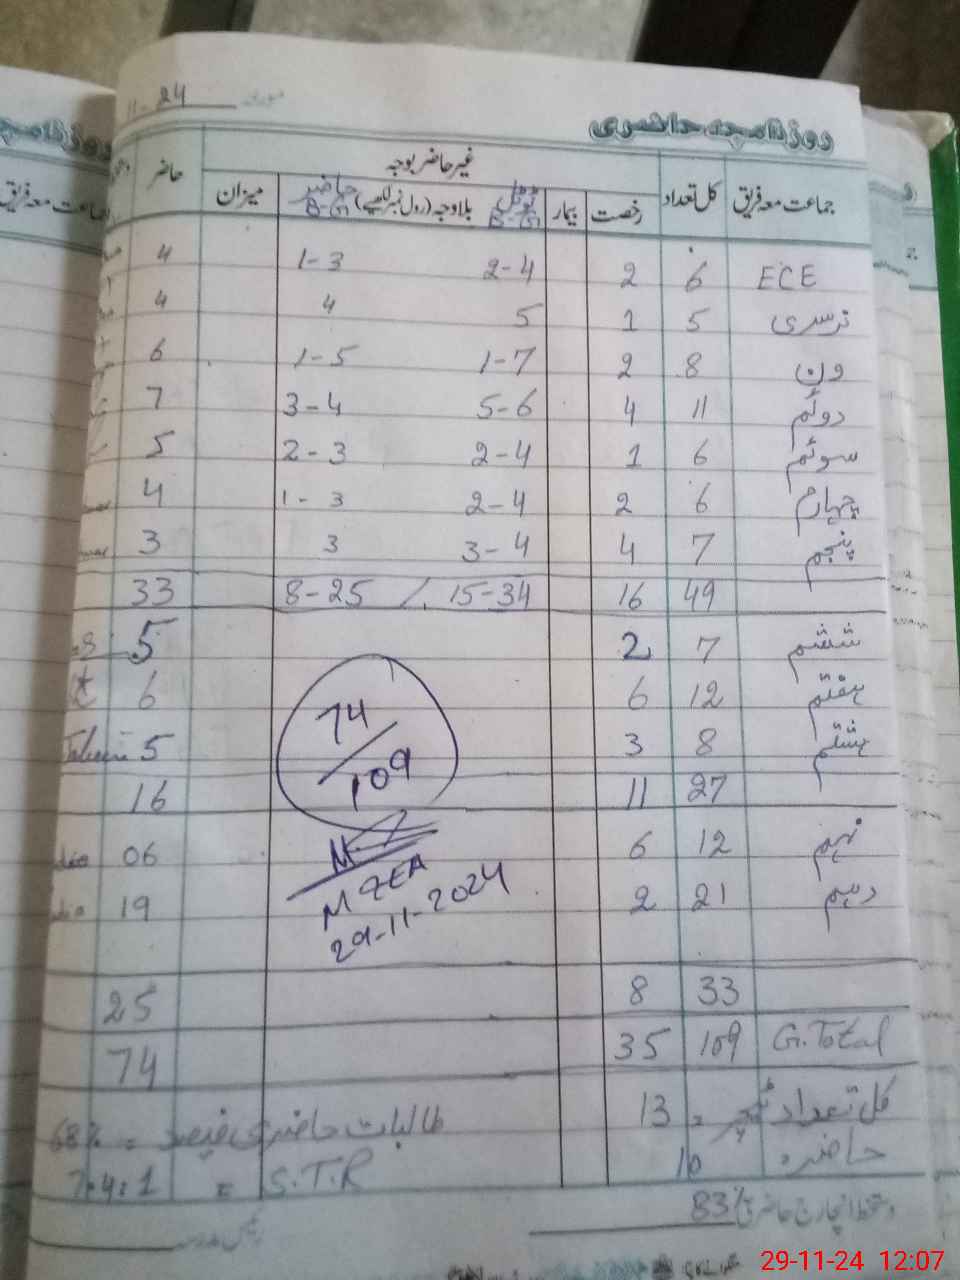 11-24
روزنامچہ حاضری
جماعت معہ فریق کل تعداد غیر حاضر بوجہ حاضر
رخصت بیمار بلاوجہ (رول نمبر لکھیے) ٹوٹل B-G حاضر B-G میزان
ECE 6 2 2-4 1-3 4
نرسری 5 1 5 4 4
ون 8 2 1-7 1-5 6
دوئم 11 4 5-6 3-4 7
سوئم 6 1 2-4 2-3 5
چہارم 6 2 2-4 1-3 4
پنجم 7 4 3-4 3 3
49 16 15-34 / 8-25 33
ششم 7 2 5
ہفتم 12 6 6
ہشتم 8 3 5
27 11 16
74/109
نہم 12 6 06
دہم 21 2 19
MEA
29-11-2024
33 8 25
G.Total 109 35 74
کل تعداد ٹیچر = 13
طالبات حاضری فیصد = 68%
حاضر = 10
S.T.R = 7.4:1
دستخط انچارج حاضری 83%
رئیس مدرسہ
29-11-24 12:07